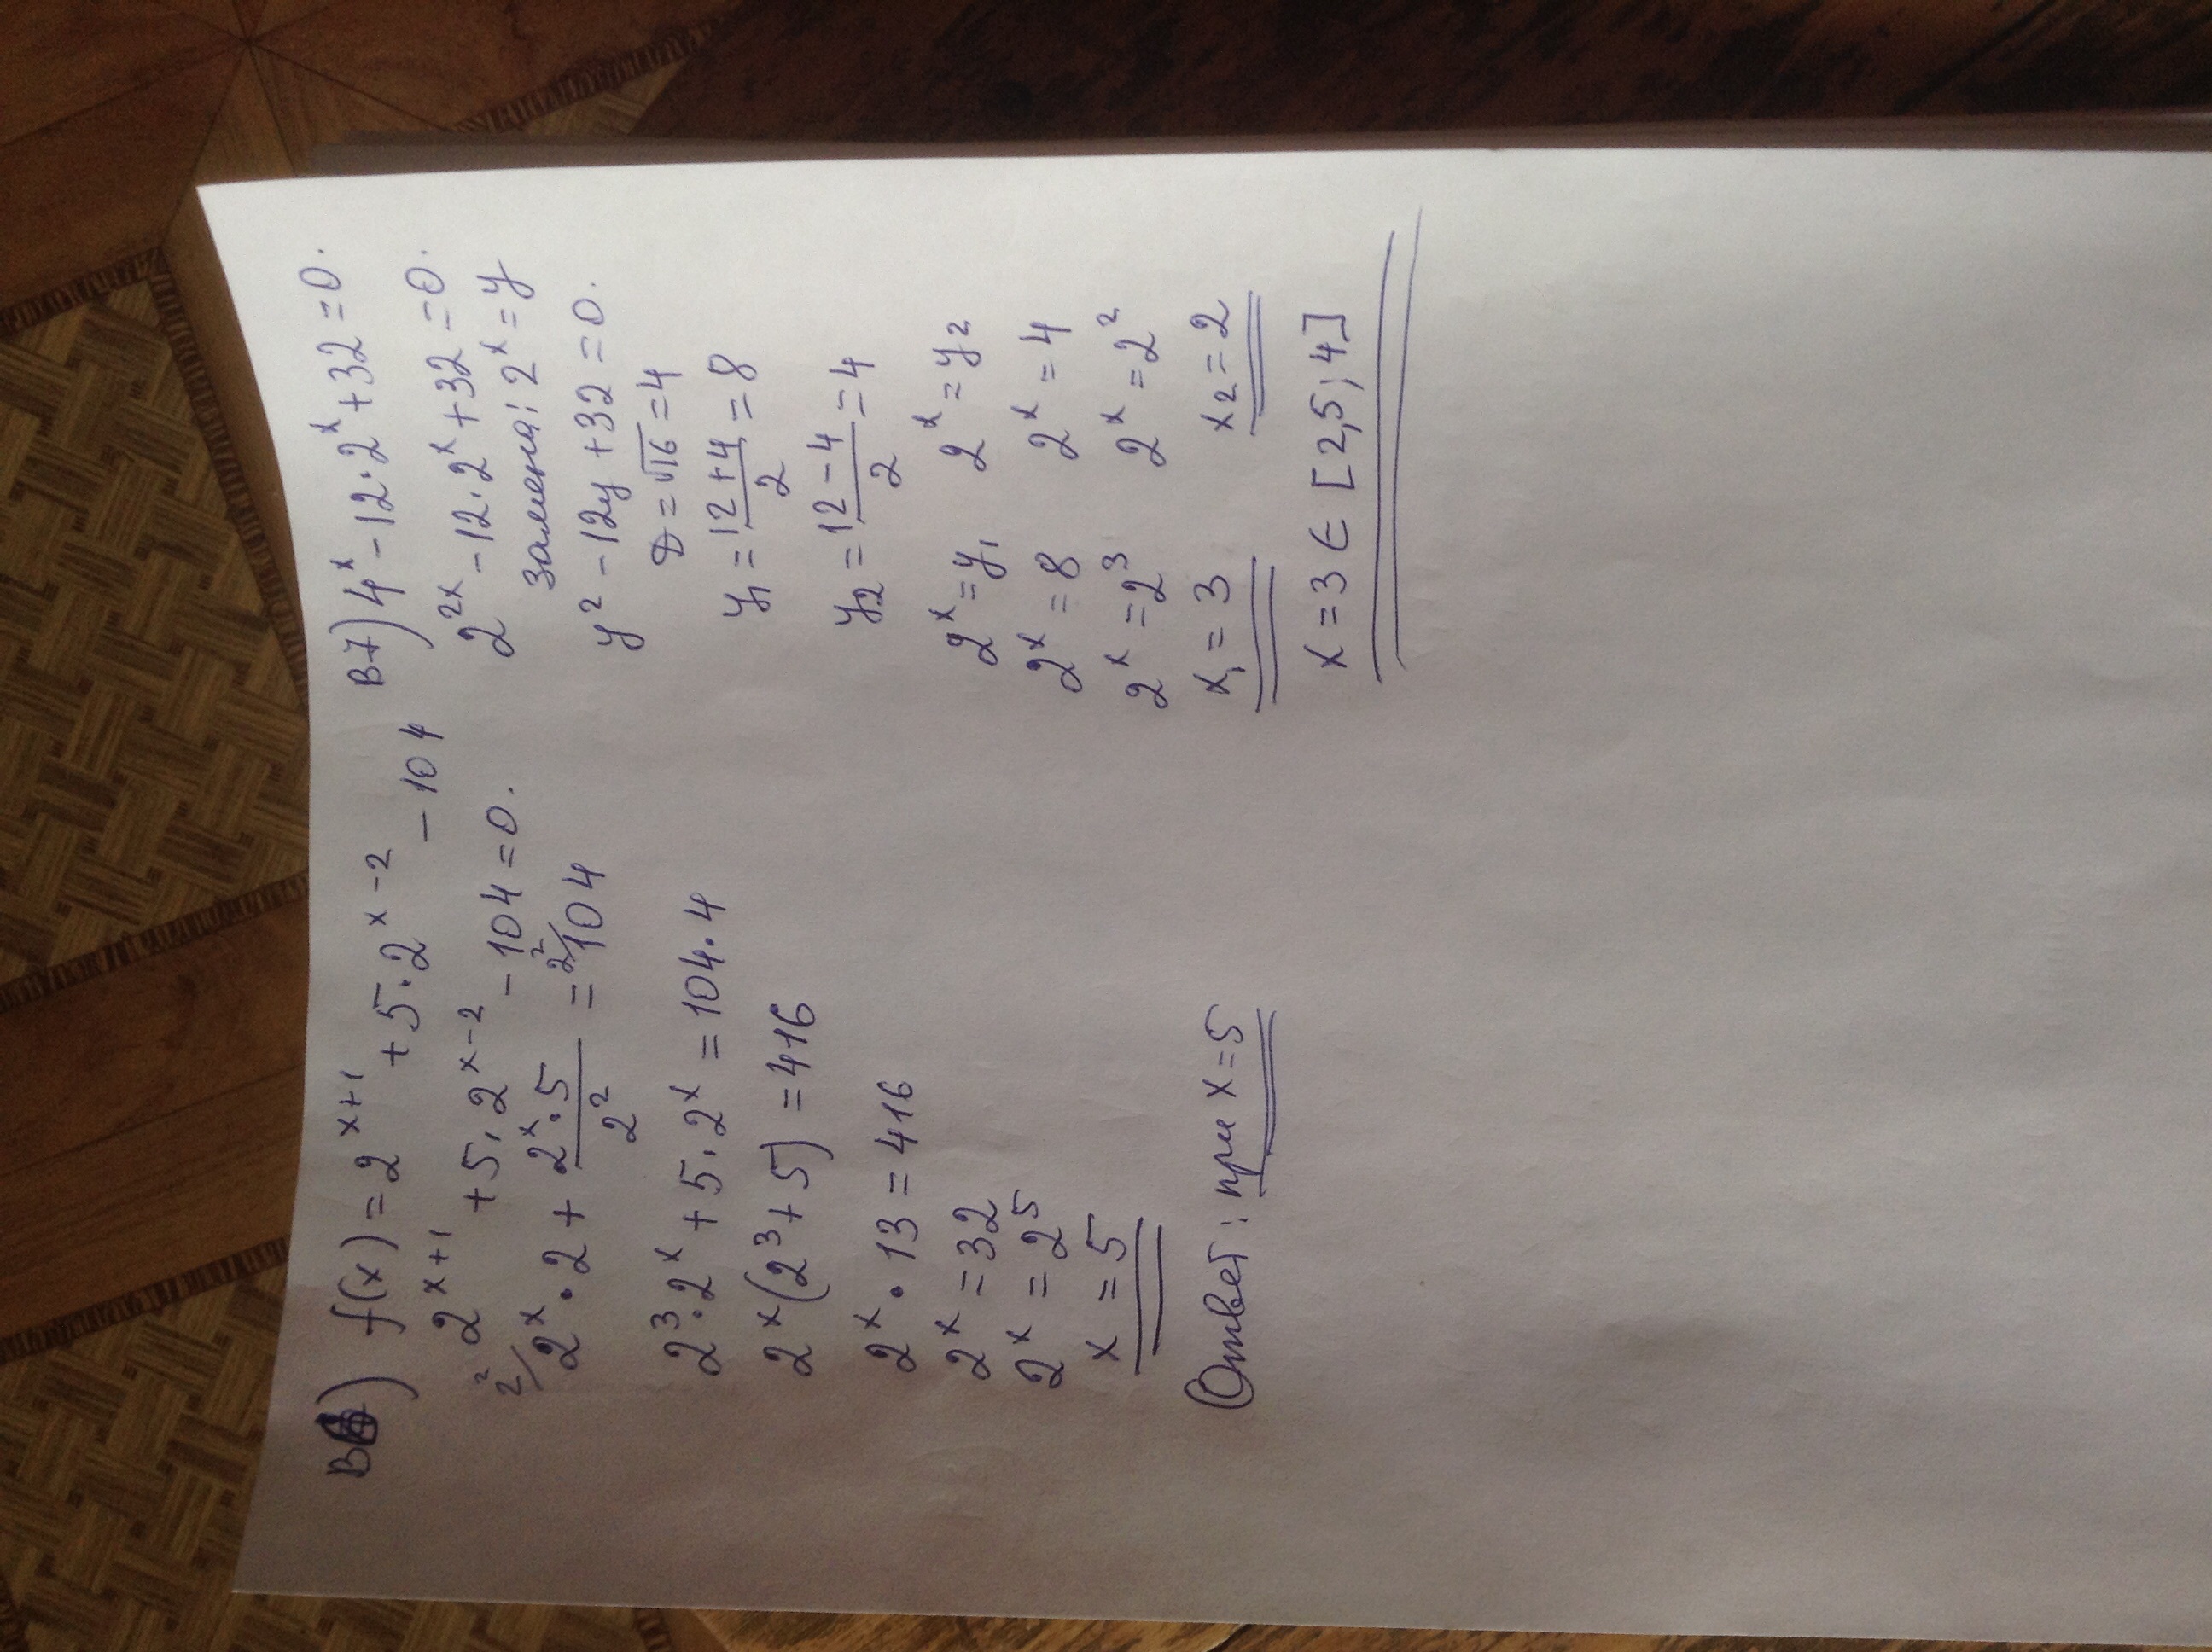 B6) f(x) = 2^{x+1} + 5·2^{x-2} - 104
2^{x+1} + 5·2^{x-2} - 104 = 0.
2²/ 2^x · 2 + \frac{2^x·5}{2²} = 2²/ 104
2³·2^x + 5·2^x = 104·4
2^x(2³+5) = 416
2^x · 13 = 416
2^x = 32
2^x = 2⁵
x = 5
Ответ: при x = 5
B7) 4^x - 12·2^x + 32 = 0.
2^{2x} - 12·2^x + 32 = 0.
замена: 2^x = y
y² - 12y + 32 = 0.
D = √16 = 4
y₁ = \frac{12+4}{2} = 8
y₂ = \frac{12-4}{2} = 4
2^x = y₁ 2^x = y₂
2^x = 8 2^x = 4
2^x = 2³ 2^x = 2²
x₁ = 3 x₂ = 2
x = 3 ∈ [2,5; 4]